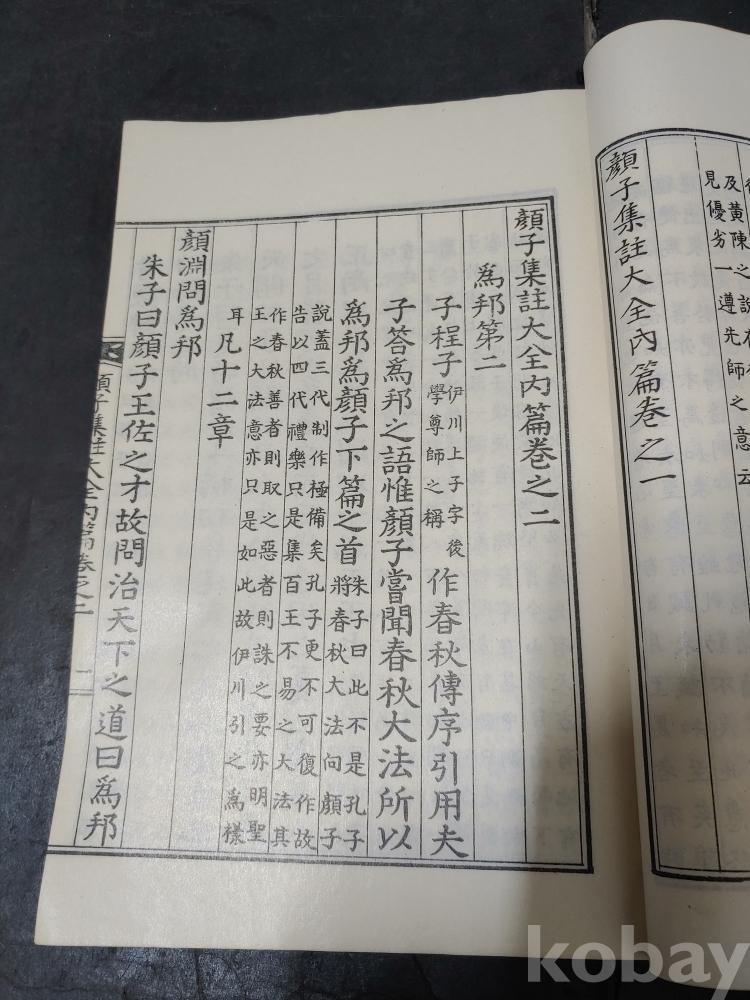 及黃陳之說
見優劣一遵先師之意云
顏子集註大全內篇卷之一
顏子集註大全內篇卷之二
爲邦第二
子程子伊川上子字後學尊師之稱作春秋傳序引用夫
子答爲邦之語惟顏子嘗聞春秋大法所以
爲邦爲顏子下篇之首朱子曰此不是孔子將春秋大法向顏子
說蓋三代制作極備矣孔子更不可復作故
告以四代禮樂只是集百王不易之大法其
作春秋善者則取之惡者則誅之要亦明聖
王之大法意亦只是如此故伊川引之爲樣
耳凡十二章
顏淵問爲邦
朱子曰顏子王佐之才故問治天下之道曰爲邦
顏子集註大全內篇卷之二 一
kobay